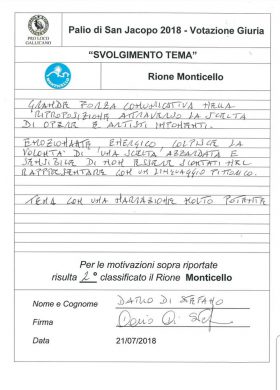 PRO LOCO
GALLICANO
Palio di San Jacopo 2018 - Votazione Giuria
“SVOLGIMENTO TEMA”
Rione Monticello
GRANDE FORZA COMUNICATIVA NELLA
RIPROPOSIZIONE ATTRAVERSO LA SCELTA
DI OPERE E ARTISTI IMPONENTI.
EMOZIONANTE, ENERGICO, COLPISCE LA
VOLONTA' DI UNA SCELTA AZZARDATA E
SENSIBILE DI NON ESSERE SCONTATI NEL
RAPPRESENTARE CON UN LINGUAGGIO PITTORICO.
TEMA CON UNA NARRAZIONE MOLTO POTENTE
Per le motivazioni sopra riportate
risulta 2° classificato il Rione Monticello
Nome e Cognome DARIO DI STEFANO
Firma Dario Di
Data 21/07/2018